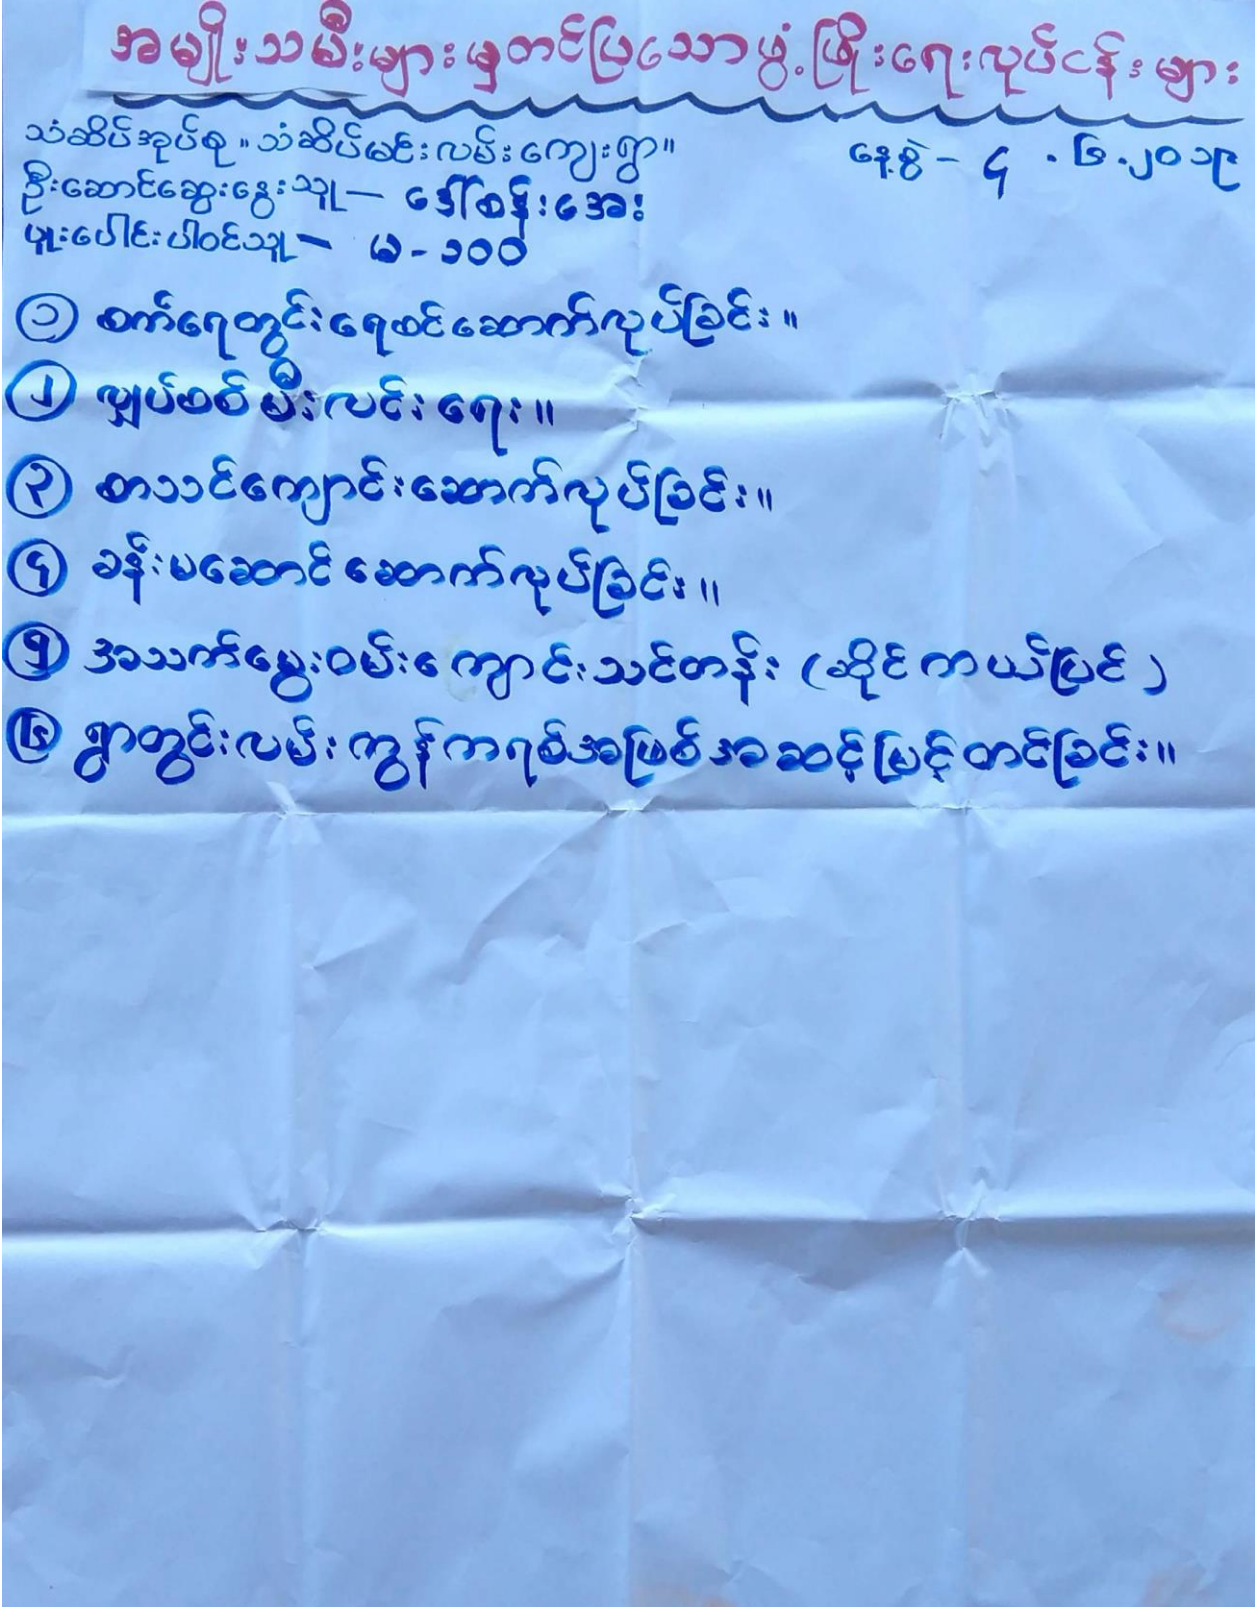 အမျိုးသမီးများမှတင်ပြသောဖွံ့ဖြိုးရေးလုပ်ငန်းများ
သံဆိပ်အုပ်စု။ သံဆိပ်မင်းလမ်းကျေးရွာ။ နေ့စွဲ - ၄ . ၆ . ၂၀၁၉
ဦးဆောင်ဆွေးနွေးသူ — ဒေါ်စန်းအေး
ပူးပေါင်းပါဝင်သူ — မ - ၁၀၀
၁ စက်ရေတွင်းရေစင်ဆောက်လုပ်ခြင်း။
၂ လျှပ်စစ်မီးလင်းရေး။
၃ စာသင်ကျောင်းဆောက်လုပ်ခြင်း။
၄ ခန်းမဆောင်ဆောက်လုပ်ခြင်း။
၅ အသက်မွေးဝမ်းကျောင်းသင်တန်း (ဆိုင်ကယ်ပြင်)
၆ ရွာတွင်းလမ်းကွန်ကရစ်အဖြစ်အဆင့်မြှင့်တင်ခြင်း။